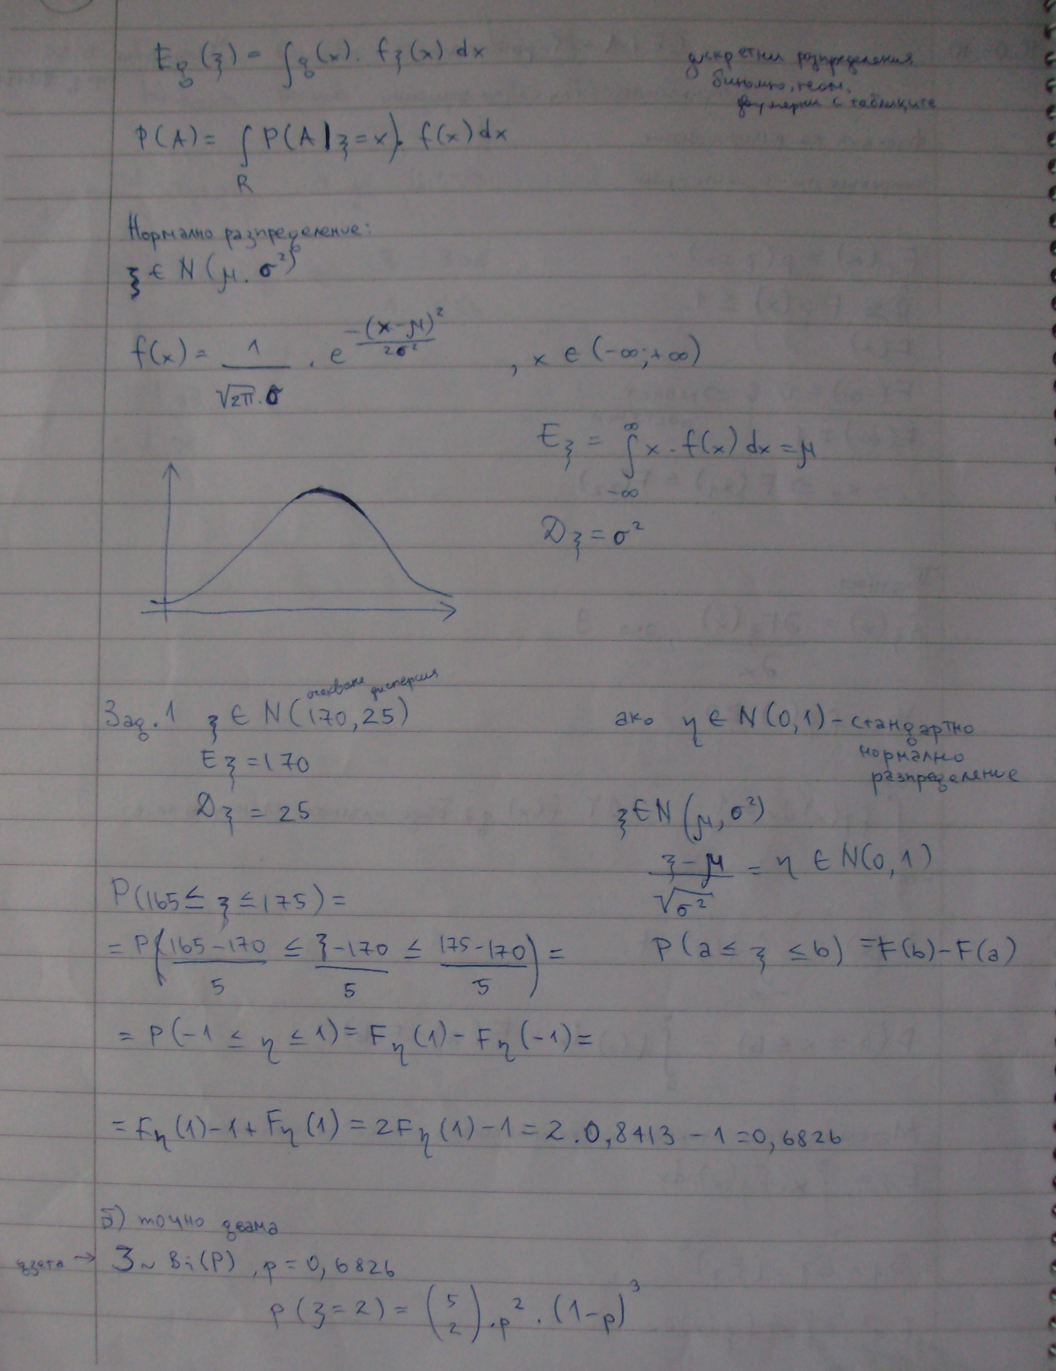 Eg(ξ) = ∫g(x). fξ(x) dx
дискретни разпределения
биномно, геом.
двумерни с таблиците
P(A) = ∫ P(A|ξ=x). f(x) dx
R
Нормално разпределение:
ξ ∈ N(μ, σ²)
f(x) = 1/(√2π.σ) . e^(-(x-μ)²/2σ²) , x ∈ (-∞;+∞)
Eξ = ∫_{-∞}^{∞} x . f(x) dx = μ
Dξ = σ²
очакване дисперсия
Зад. 1 ξ ∈ N(170, 25)
Eξ = 170
Dξ = 25
ако η ∈ N(0,1) - стандартно
нормално
разпределение
ξ ∈ N(μ, σ²)
(ξ-μ)/√σ² = η ∈ N(0,1)
P(165 ≤ ξ ≤ 175) =
= P((165-170)/5 ≤ (ξ-170)/5 ≤ (175-170)/5) =
P(a ≤ ξ ≤ b) = F(b) - F(a)
= P(-1 ≤ η ≤ 1) = Fη(1) - Fη(-1) =
= Fη(1) - 1 + Fη(1) = 2Fη(1) - 1 = 2.0,8413 - 1 = 0,6826
б) точно двама
дзета → 3 ~ Bi(P), p = 0,6826
p(ξ=2) = (5 2).p².(1-p)³